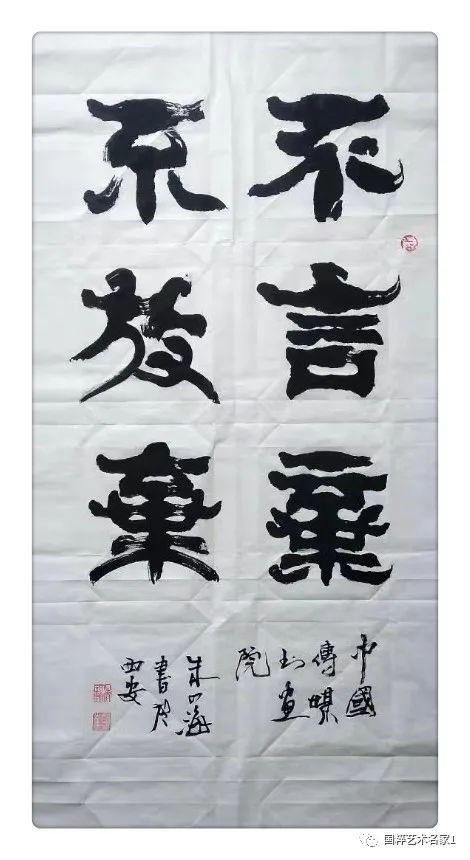 不言棄
不放棄
中國
傳媒
书畫
院
書於
西安
国粹艺术名家1